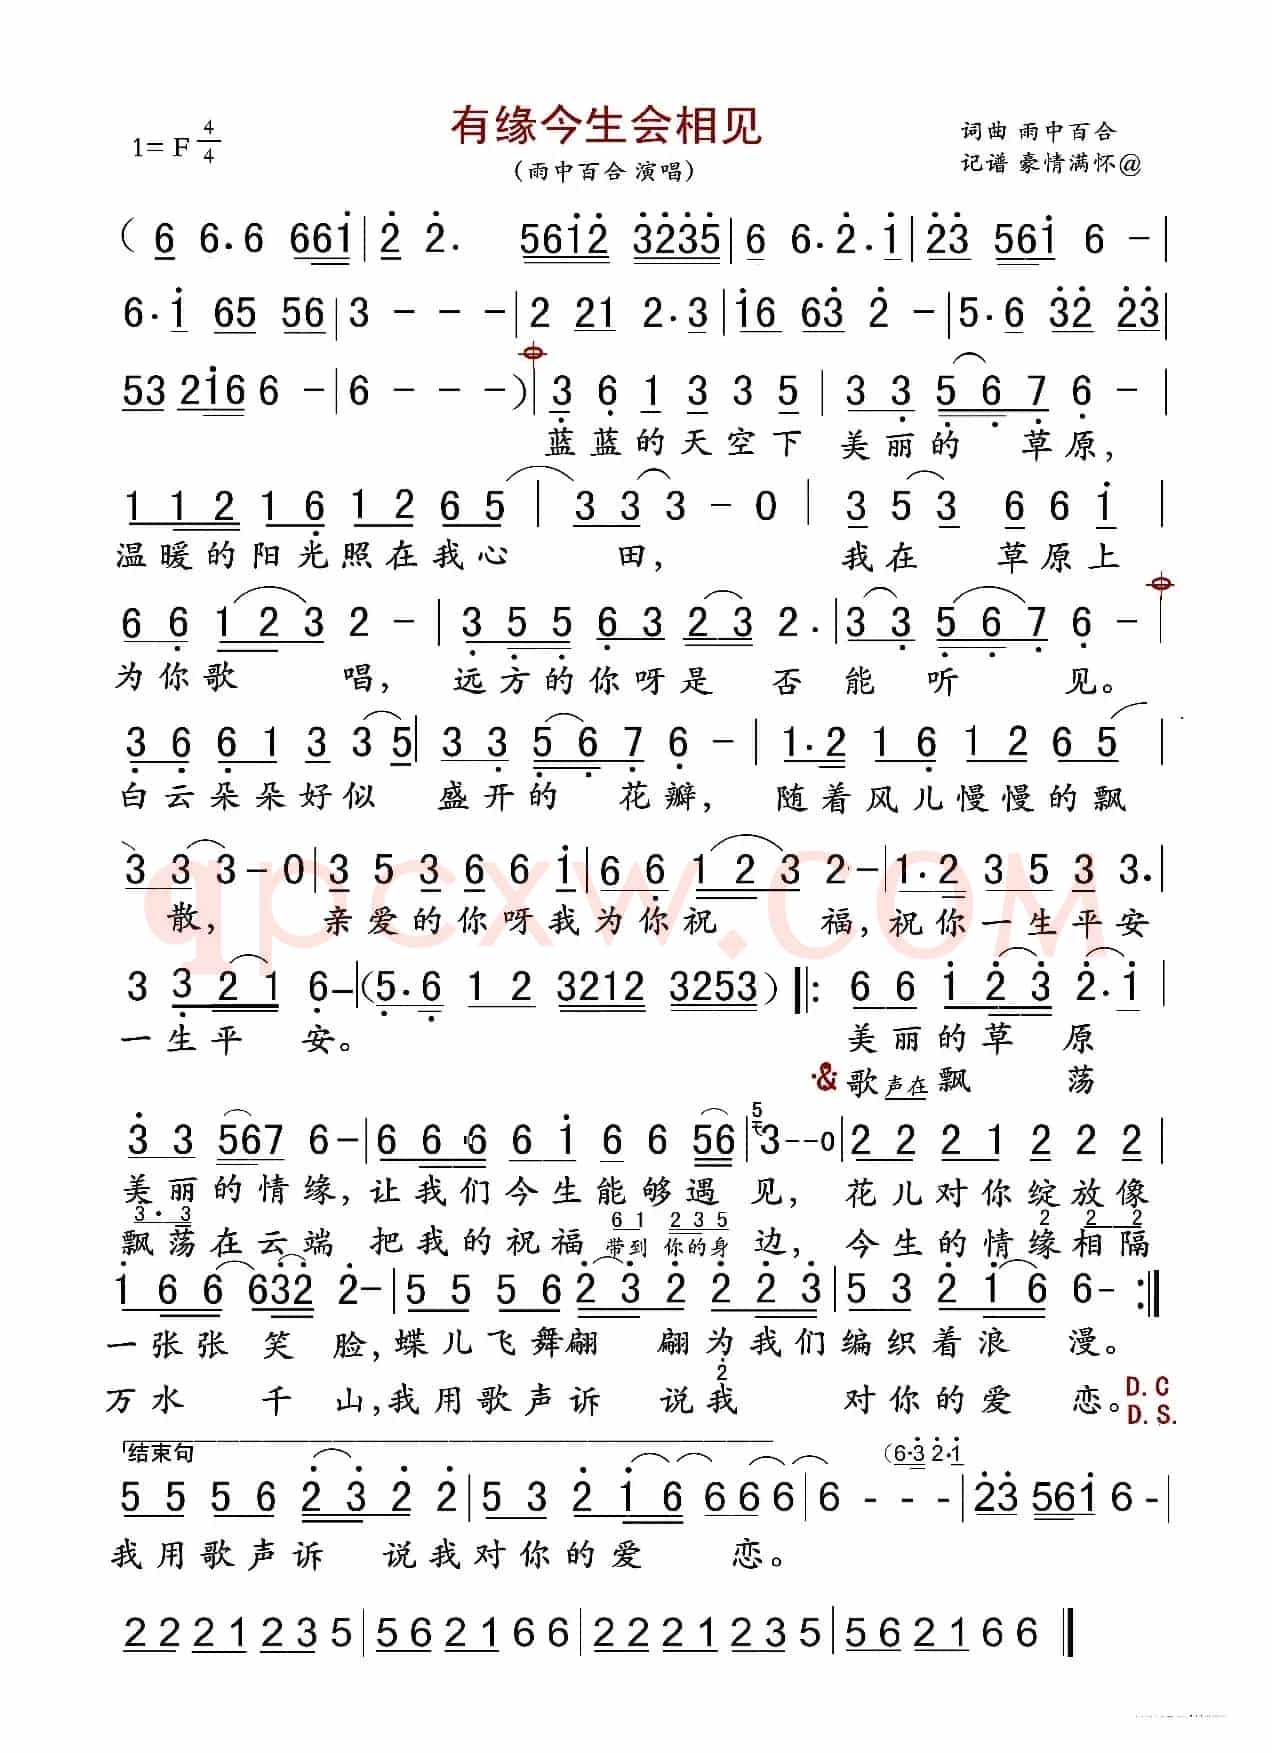 有缘今生会相见
1= F 4/4
(雨中百合 演唱)
词曲 雨中百合
记谱 豪情满怀@
( 6 6. 6 6 6 1 | 2 2. 5 6 1 2 3 2 3 5 | 6 6. 2. 1 | 2 3 5 6 1 6 - |
6. 1 6 5 5 6 | 3 - - - | 2 2 1 2. 3 | 1 6 6 3 2 - | 5. 6 3 2 2 3 |
5 3 2 1 6 6 - | 6 - - - ) | 3 6 1 3 3 5 | 3 3 5 6 7 6 - |
蓝蓝的天空下 美丽的 草原,
1 1 2 1 6 1 2 6 5 | 3 3 3 - 0 | 3 5 3 6 6 1 |
温暖的阳光照在我心 田, 我在 草原上
6 6 1 2 3 2 - | 3 5 5 6 3 2 3 2. | 3 3 5 6 7 6 - |
为你歌 唱, 远方的你呀是 否 能 听 见。
3 6 6 1 3 3 5 | 3 3 5 6 7 6 - | 1. 2 1 6 1 2 6 5 |
白云朵朵好似 盛开的 花瓣, 随着风儿慢慢的飘
3 3 3 - 0 | 3 5 3 6 6 1 | 6 6 1 2 3 2 - | 1. 2 3 5 3 3. |
散, 亲爱的你呀我为你祝 福, 祝你一生平安
qpcxw.COM
3 3 2 1 6 - | ( 5. 6 1 2 3 2 1 2 3 2 5 3 ) ‖: 6 6 1 2 3 2. 1 |
一生平 安。 美丽的草 原
歌声在飘 荡
3 3 5 6 7 6 - | 6 6 6 6 1 6 6 5 6 | 5 3 - - 0 | 2 2 2 1 2 2 2 |
美丽的情缘, 让我们今生能够遇 见, 花儿对你绽放像
3. 3 6 1 2 3 5 2 2 2
飘荡在云端 把我的祝福 带到 你的身 边, 今生的情缘相隔
1 6 6 6 3 2 2 - | 5 5 5 6 2 3 2 2 2 3 | 5 3 2 1 6 6 - :‖
一张张 笑 脸, 蝶儿飞舞翩 翩为我们编织着浪 漫。
2
万水 千 山, 我用歌声诉 说我 对你的爱 恋。 D.C
D.S.
结束句 (6. 3 2. 1
5 5 5 6 2 3 2 2 | 5 3 2 1 6 6 6 6 | 6 - - - | 2 3 5 6 1 6 - |
我用歌声诉 说我对你的爱 恋。
2 2 2 1 2 3 5 | 5 6 2 1 6 6 | 2 2 2 1 2 3 5 | 5 6 2 1 6 6 ‖